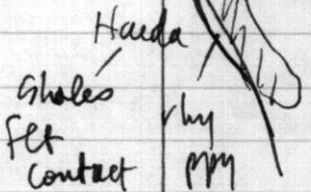 Shales
flt
contact
rhy
ppy